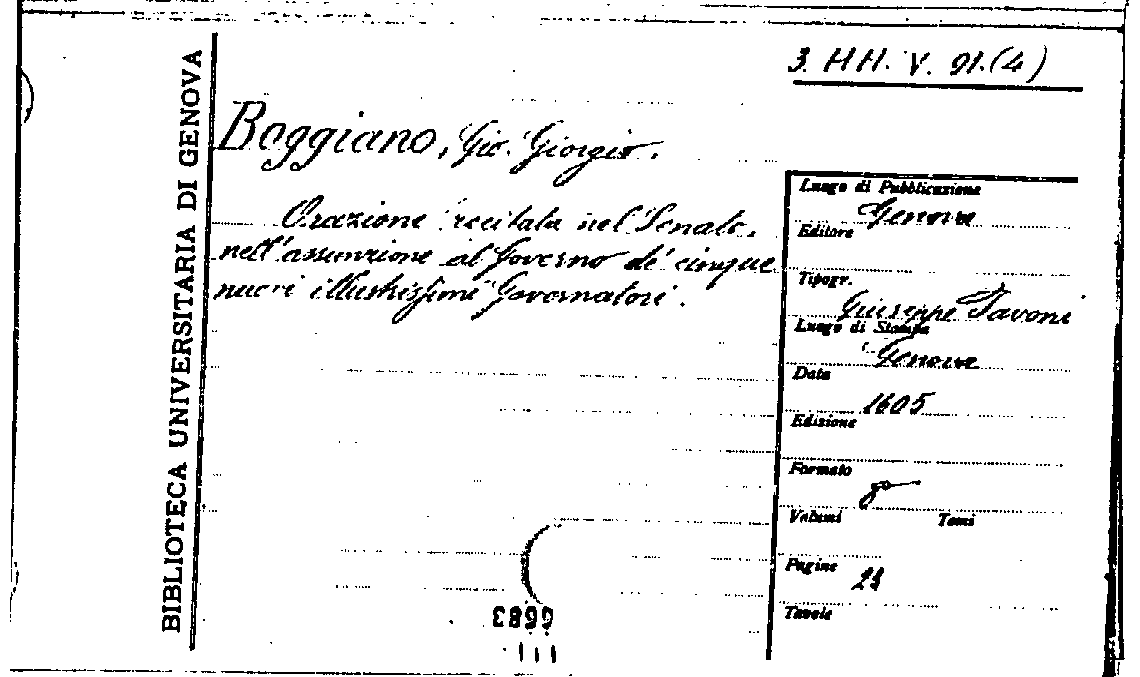 3. HH. V. 91.(4)
BIBLIOTECA UNIVERSITARIA DI GENOVA
Boggiano, Gio. Giorgio.
Orazione recitata nel Senato,
nell'assunzione al Governo de' cinque
nuovi illustrissimi Governatori.
Luogo di Pubblicazione
Genova
Editore
Tipogr.
Giuseppe Pavoni
Luogo di Stampa
Genova
Data
1605
Edizione
Formato
8°
Volumi Tomi
Pagine
Tavole